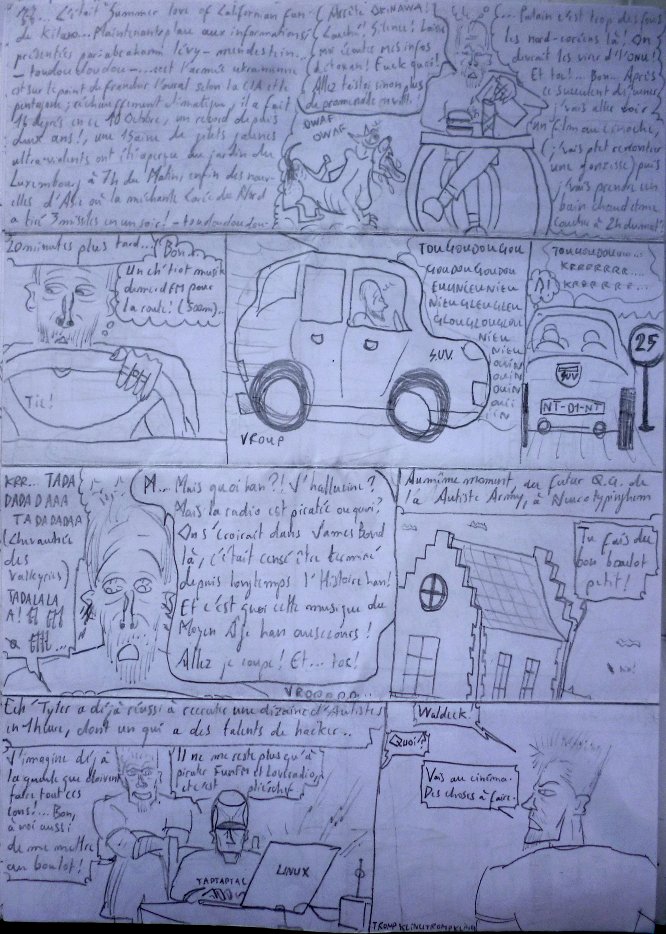 C'était Summer love of Californian fun
de Kitano... Maintenant place aux informations
présentées par abraham lévy-mendestein.
-toudoudoudou-... c'est l'armée
est sur le point de franchir l'oural selon la CIA et le
pentagone; réchauffement climatique, il a fait
16 degrés en ce 10 Octobre, un record depuis
deux ans!, une 15aine de gilets jaunes
ultra-violents ont été aperçus au jardin du
Luxembourg à 7h du Matin, enfin des nouv-
elles d'Asie où la méchante Corée du Nord
a tiré 3 missiles en un soir! -toudoudoudou-
Arrête OKINAWA!
Couché! Silence! Laisse
moi écouter mes infos
Fuck quoi!
Allez tais toi sinon plus
de promenade
OWAF
OWAF
... Putain c'est trop des fous
les nord-coréens là! On
devrait les virer d'l'ONU!
Et toc!... Bon... Après
ce succulent déjeuner
j'vais aller voir
un film au cinoche,
(j'vais ptet rencontrer
une gonzesse) puis
j'vais prendre un
bain chaud et me
coucher à 2h du mat!
20 minutes plus tard...
Bon..
Un ch'tiot
pour
la route! (500m)..
Tic!
TOUGOUDOUGOU
GOUDOUGOUDOU
EUNIEUNIEU
NIEUGLEUGLEU
GLOUGLOUGLOU
NIEU
NIEU
OUIN
OUIN
OUIN
S.U.V.
VROUP
KRRRRRRR....
KRRRRRR...
A!
25
SUV
NT-D1-NT
KRR... TADA
DADADAAA
TADADADAA
(chevauchée
des
valkyries)
TADALALA
A!
M... Mais quoi han?! J'hallucine?
Mais la radio est piratée ou quoi?
On s'croirait dans James Bond
là, c'était censé être terminé
depuis longtemps l'Histoire han!
Et c'est quoi cette musique du
Moyen Âge han ausecours!
Allez je coupe! Et... toc!
VROOOPP...
Au même moment, au futur Q.G. de
l'Autiste Army, à Neurotypinghem
Tu fais du
bon boulot
petit!
Tyler a déjà réussi à recruter une dizaine d'Autistes
en 1 heure, dont un qui a des talents de hacker..
J'imagine déjà
la gueule que doivent
faire tout ces
cons!... Bon,
à moi aussi
de me mettre
au boulot!
Il ne me reste plus qu'à
pirater FunFM et Loveradio,
et c'est
TAPTAPTAC
LINUX
Waldeck.
Quoi?
Vais au cinéma.
Des choses à faire.
TROMPKLINGTROMPKLING